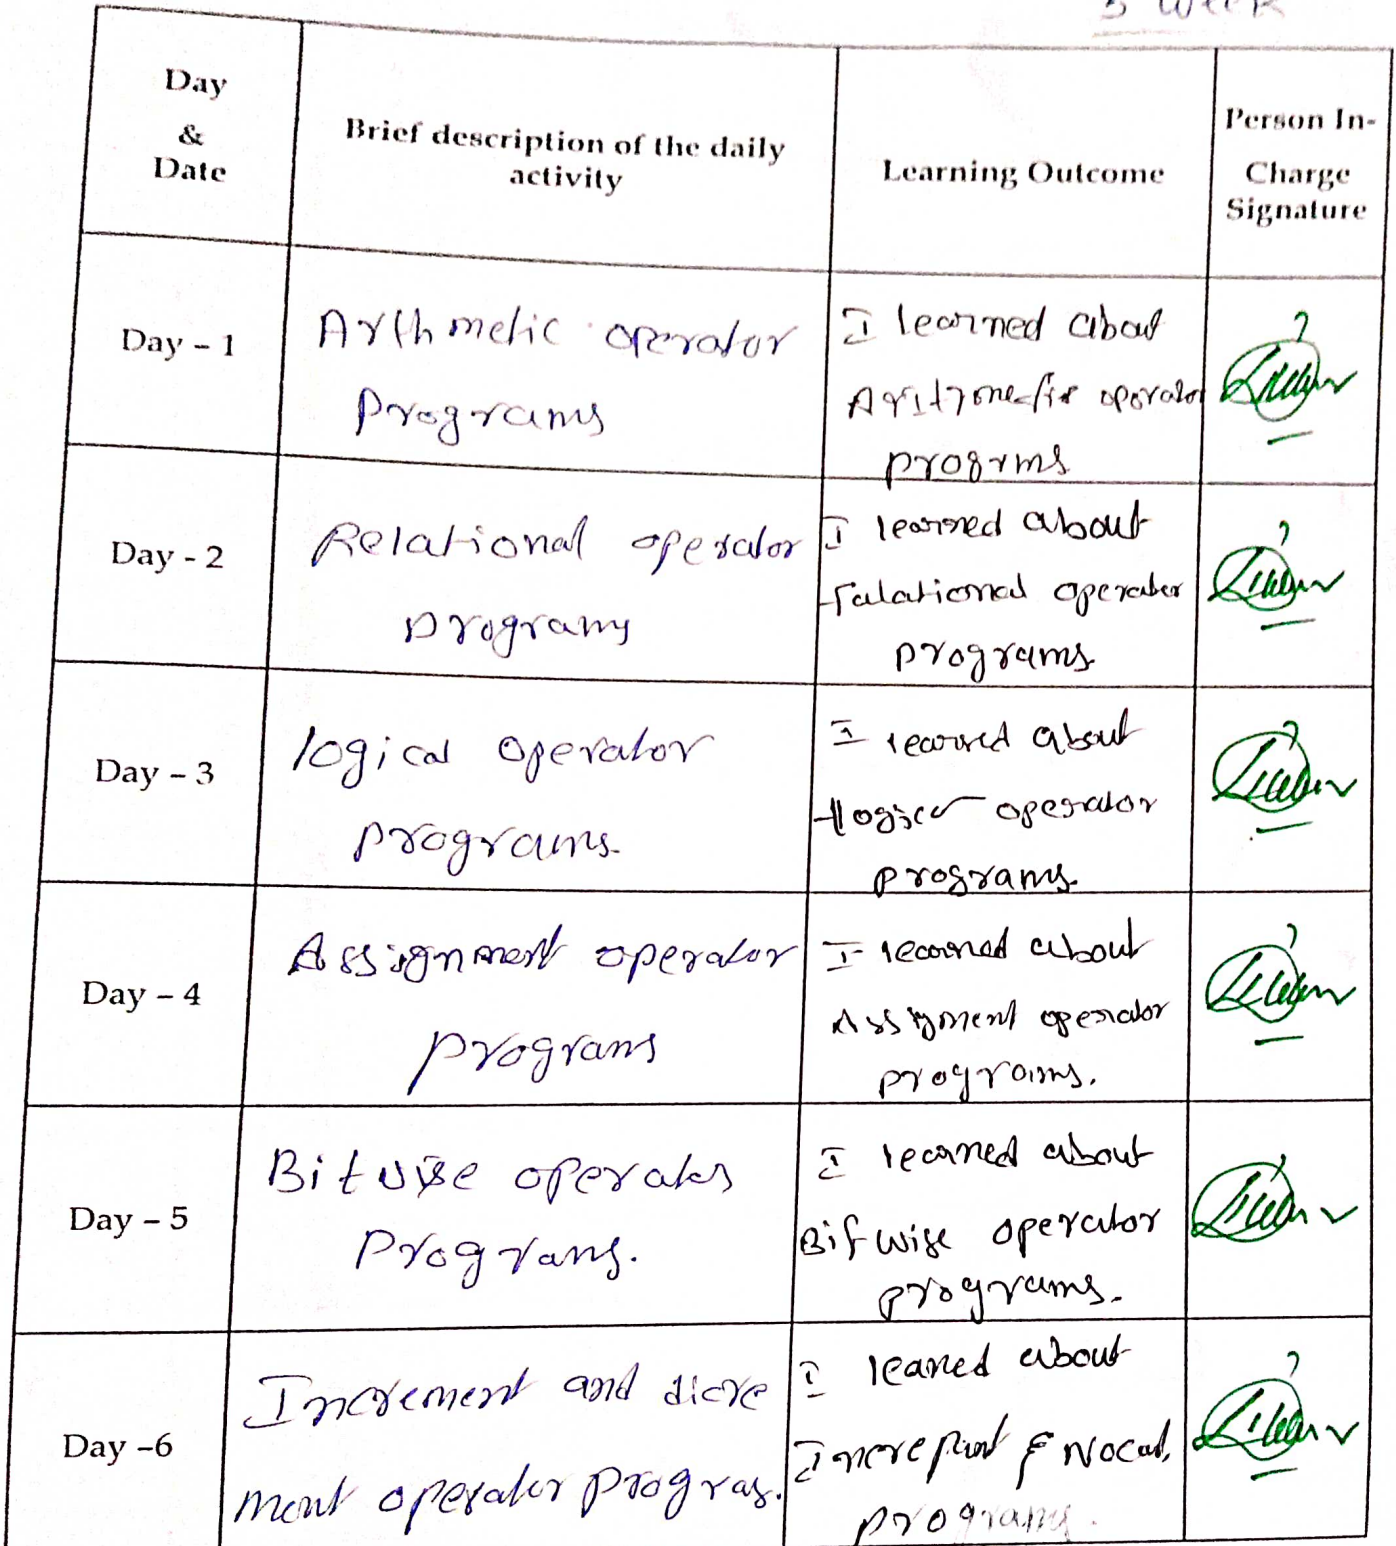 Week
Day
&
Date
Brief description of the daily
activity
Learning Outcome
Person In-
Charge
Signature
Day - 1
Arthmetic operator
Programs
I learned about
operator
progrms
Day - 2
Relational operator
programs
I learned about
ralational operator
programs
Day - 3
logical operator
programs.
I learned about
operator
programs.
Day - 4
Assignment operator
programs
I learned about
Assignment operator
programs.
Day - 5
Bitwise
Programs.
I learned about
Bitwise operator
programs.
Day -6
Increment and dicre
ment operator
I leaned about
programs.